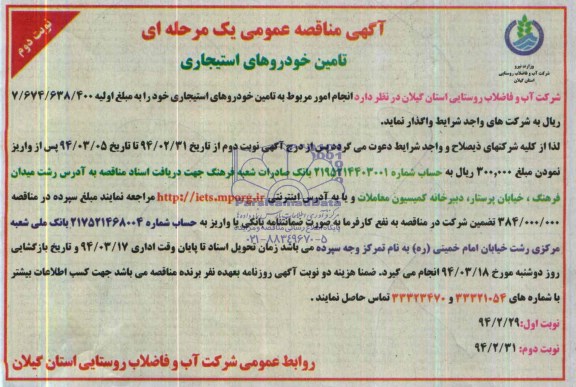 نوبت دوم
آگهی مناقصه عمومی یک مرحله ای
تامین خودروهای استیجاری
وزارت نیرو
شرکت آب و فاضلاب روستایی
استان گیلان
شرکت آب و فاضلاب روستایی استان گیلان در نظر دارد انجام امور مربوط به تامین خودروهای استیجاری خود را به مبلغ اولیه ۷/۶۷۴/۶۳۸/۴۰۰
ریال به شرکت های واجد شرایط واگذار نماید.
لذا از کلیه شرکتهای ذیصلاح و واجد شرایط دعوت می گردد پس از درج آگهی نوبت دوم از تاریخ ۹۴/۰۲/۳۱ تا تاریخ ۹۴/۰۳/۰۵ پس از واریز
نمودن مبلغ ۳۰۰,۰۰۰ ریال به حساب شماره ۲۱۹۵۲۱۴۴۰۳۰۰۱ بانک صادرات شعبه فرهنگ جهت دریافت اسناد مناقصه به آدرس رشت میدان
فرهنگ ، خیابان پرستار، دبیرخانه کمیسیون معاملات و یا به آدرس اینترنتی http://iets.mporg.ir مراجعه نمایند مبلغ سپرده در مناقصه
۳۸۴/۰۰۰/۰۰۰ تضمین شرکت در مناقصه به نفع کارفرما به صورت ضمانتنامه بانکی یا واریز به حساب شماره ۲۱۷۵۲۱۴۶۸۰۰۴ بانک ملی شعبه
مرکزی رشت خیابان امام خمینی (ره) به نام تمرکز وجه سپرده می باشد زمان تحویل اسناد تا پایان وقت اداری ۹۴/۰۳/۱۷ و تاریخ بازگشایی
روز دوشنبه مورخ ۹۴/۰۳/۱۸ انجام می گیرد. ضمنا هزینه دو نوبت آگهی روزنامه بعهده نفر برنده مناقصه می باشد جهت کسب اطلاعات بیشتر
با شماره های ۳۳۳۲۱۰۵۴ و ۳۳۳۲۳۴۷۰ تماس حاصل نمایند .
نوبت اول: ۹۴/۲/۲۹
نوبت دوم: ۹۴/۲/۳۱
روابط عمومی شرکت آب و فاضلاب روستایی استان گیلان
۰۲۱-۸۸۳۴۹۶۷۰-۵